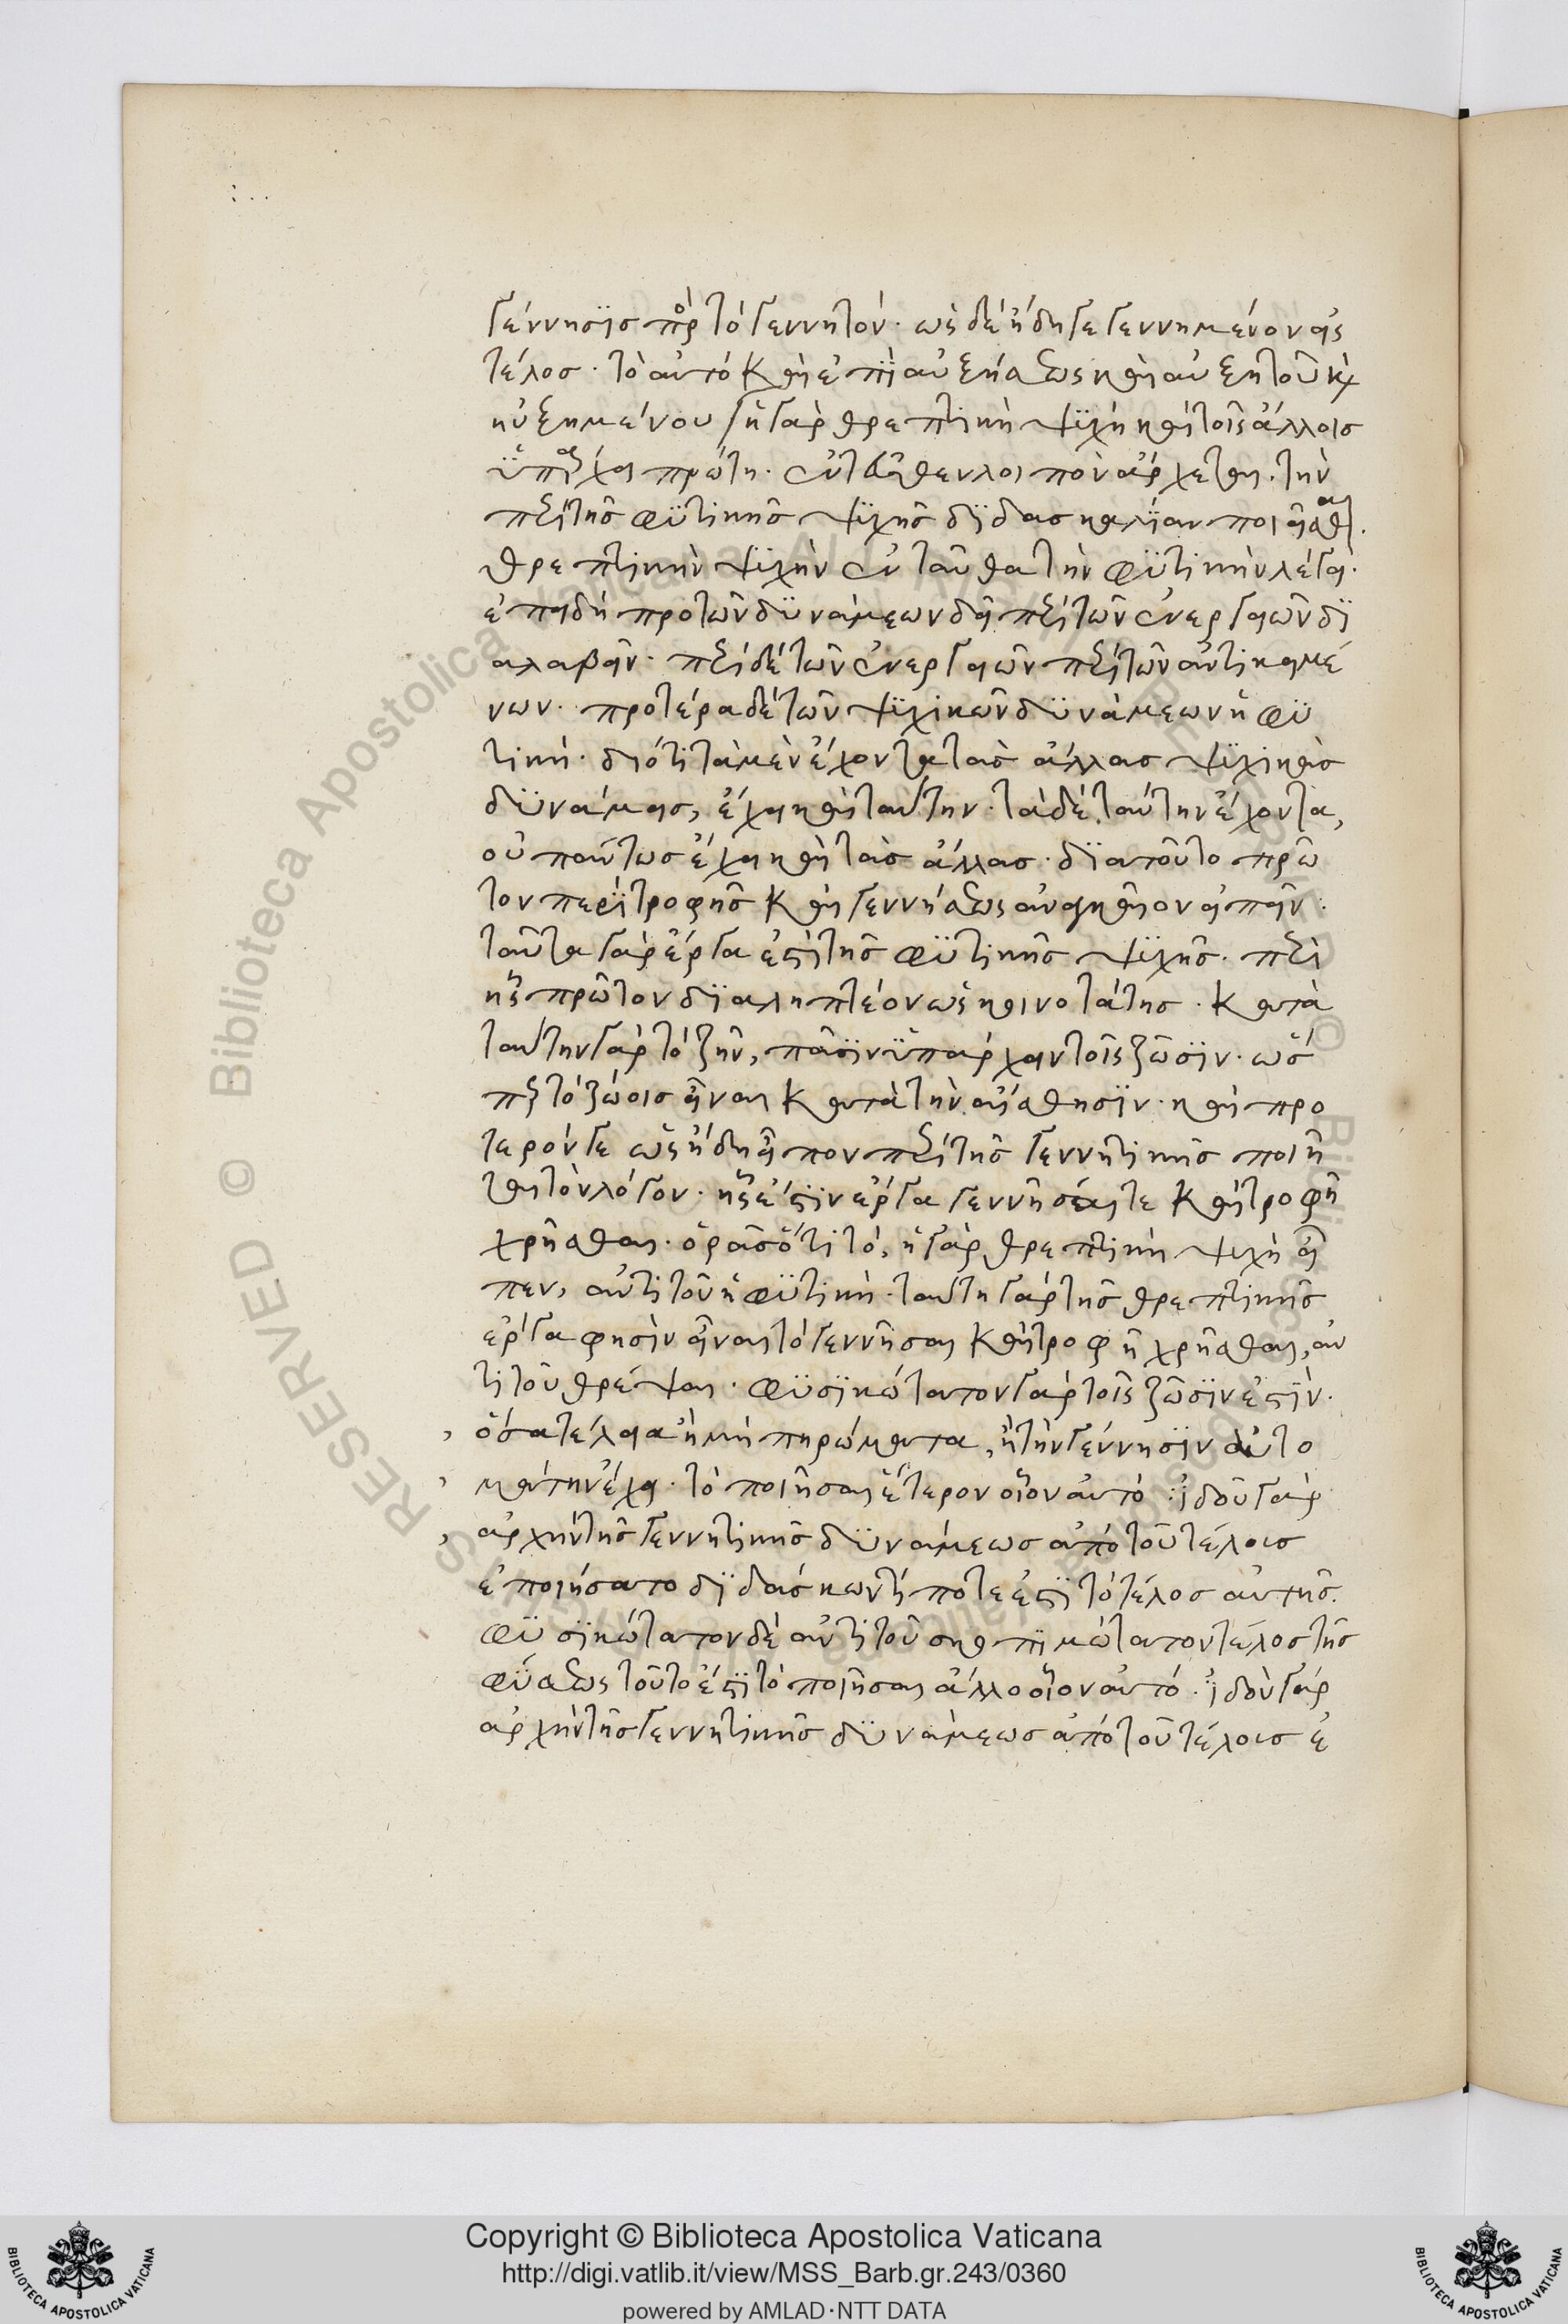 γέννησϊς πρὸς τὸ γεννητόν. ὡς δὲ ἤδη γεγεννημένον εἰς
τέλος. τὸ αὐτὸ καὶ ἐπῒ αὐξήσεως καὶ αὐξητοῦ καὶ
ηὐξημένου ἡ γὰρ θρεπτικὴ ψϋχὴ καὶ τοῖς ἄλλοις
ὑπάρχει πρώτη. ἐντεῦθεν λοιπὸν ἄρχεται τὴν
περὶ τῆς φϋτικῆς ψϋχῆς δϊδασκαλΐαν ποιεῖσθαι.
θρεπτικὴν ψϋχὴν ἐνταῦθα τὴν φϋτικὴν λέγει.
ἐπειδὴ πρὸ τῶν δϋνάμεων δεῖ περὶ τῶν ἐνεργειῶν δϊ
αλαβεῖν. περὶ δὲ τῶν ἐνεργειῶν περὶ τῶν ἀντικειμέ
νων. προτέρα δὲ τῶν ψϋχικῶν δϋνάμεων ἡ φϋ
τική. διότι τὰ μὲν ἔχοντα τὰς ἄλλας ψϋχικὰς
δϋνάμεις, ἔχει καὶ ταύτην. τὰ δὲ ταύτην ἔχοντα,
οὐ πάντως ἔχει καὶ τὰς ἄλλας. δϊατοῦτο πρῶ
τον περὶ τροφῆς καὶ γεννήσεως ἀναγκαῖον εἰπεῖν.
ταῦτα γὰρ ἔργα ἐστὶ τῆς φϋτικῆς ψϋχῆς. περὶ
ἧς πρῶτον δϊαληπτέον ὡς κοινοτάτης. κατὰ
ταύτην γὰρ τὸ ζῆν, πᾶσϊν ὑπάρχειν τοῖς ζῶσϊν. ὥσ
περ τὸ ζώοις εἶναι κατὰ τὴν αἴσθησϊν. καὶ πρό
τερόν γε ὡς ἤδη εἶπον περὶ τῆς γεννητικῆς ποιεῖ
ται τὸν λόγον. ἧς ἐστϊν ἔργα γεννῆσαί τε καὶ τροφῆ
χρῆσθαι. ὁρᾶς ὅτι τό, ἡ γὰρ θρεπτικὴ ψυχὴ εἶ
πεν, ἀντὶ τοῦ ἡ φϋτική. ταύτη γὰρ τῆς θρεπτικῆς
ἔργα φησὶν εἶναι τὸ γεννῆσαι καὶ τροφῆ χρῆσθαι, ἀν
τὶ τοῦ θρέψαι. φϋσϊκώτατον γὰρ τοῖς ζῶσϊν ἐστΐν.
ὅσα τέλεια ἢ μὴ πηρώματα, ἢ τὴν γέννησϊν αὐτο
μάτην ἔχει. τὸ ποιῆσαι ἕτερον οἷον αὐτό. ἰδοῦ γὰρ
ἀρχὴν τῆς γεννητικῆς δϋνάμεως ἀπὸ τοῦ τέλους
ἐποιήσατο δϊδάσκων τί ποτε ἐστΐ τὸ τέλος αὐτῆς.
φϋσϊκώτατον δὲ ἀντὶ τοῦ σκοπϊμώτατον τέλος τῆς
φύσεως τοῦτο ἐστΐ τὸ ποιῆσαι ἄλλο οἷον αὐτό. ἰδοὺ γὰρ
ἀρχὴν τῆς γεννητικῆς δϋνάμεως ἀπὸ τοῦ τέλους ἐ
Copyright © Biblioteca Apostolica Vaticana
http://digi.vatlib.it/view/MSS_Barb.gr.243/0360
powered by AMLAD·NTT DATA